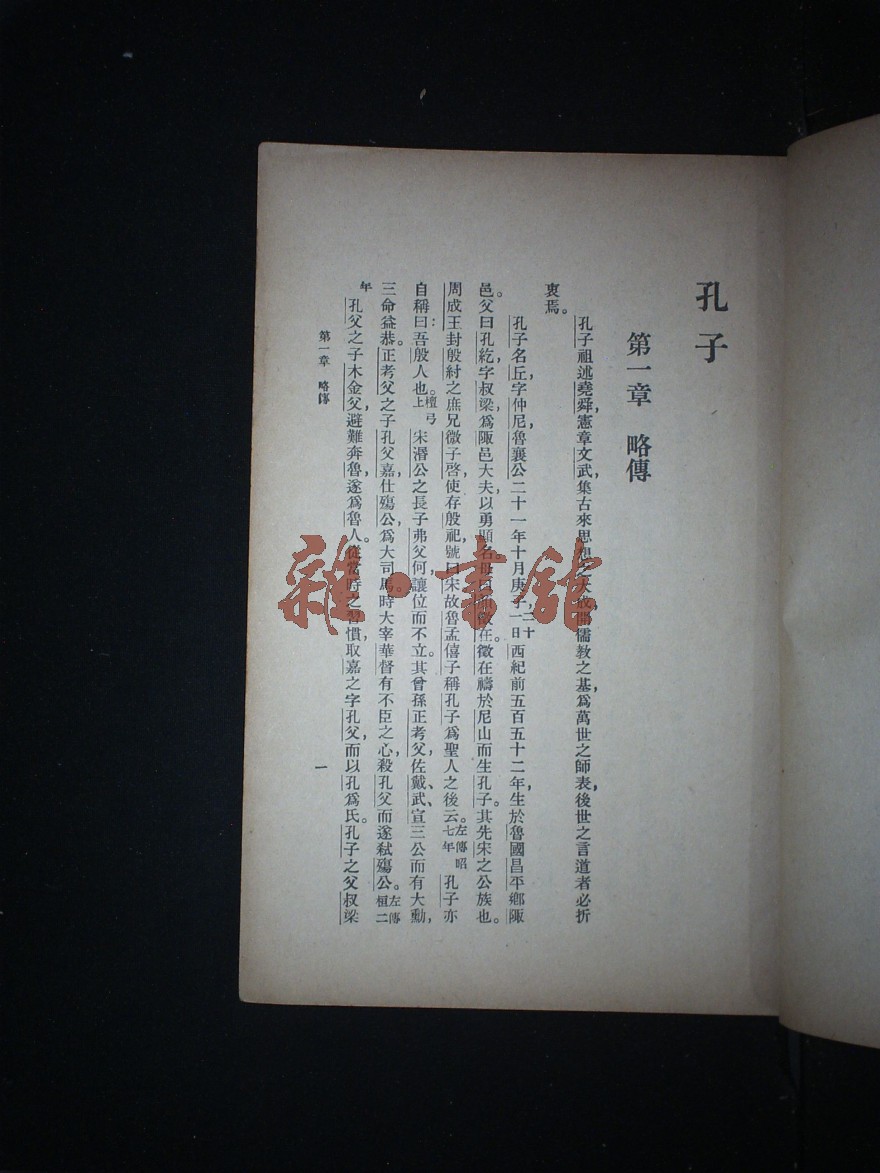 孔子
第一章 略傳
孔子祖述堯舜,憲章文武,集古來思想之大成,開儒教之基,爲萬世之師表,後世之言道者必折
衷焉。
孔子名丘,字仲尼,魯襄公二十一年十月庚子,二十一日西紀前五百五十二年,生於魯國昌平鄉陬
邑。父曰孔紇,字叔梁,爲陬邑大夫,以勇顯名。母曰顏徵在。徵在禱於尼山而生孔子。其先宋之公族也。
周成王封殷紂之庶兄微子啓,使存殷祀,號曰宋,故魯孟僖子稱孔子爲聖人之後云。左傳昭七年 孔子亦
自稱曰:吾殷人也。檀弓上 宋湣公之長子弗父何,讓位而不立。其曾孫正考父,佐戴、武、宣三公而有大勳,
三命益恭。正考父之子孔父嘉,仕殤公,爲大司馬。時大宰華督有不臣之心,殺孔父而遂弒殤公。左傳桓二
年 孔父之子木金父,避難奔魯,遂爲魯人。從當時之習慣,取嘉之字孔父,而以孔爲氏。孔子之父叔梁
第一章 略傳
一
雜·書館